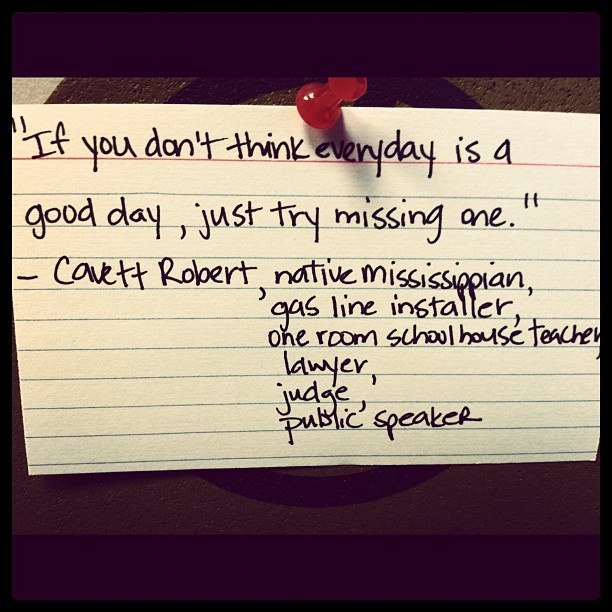 "If you don't think everyday is a
good day, just try missing one."
- Cavett Robert, native mississippian,
gas line installer,
one room schoolhouse teacher,
lawyer,
judge,
public speaker